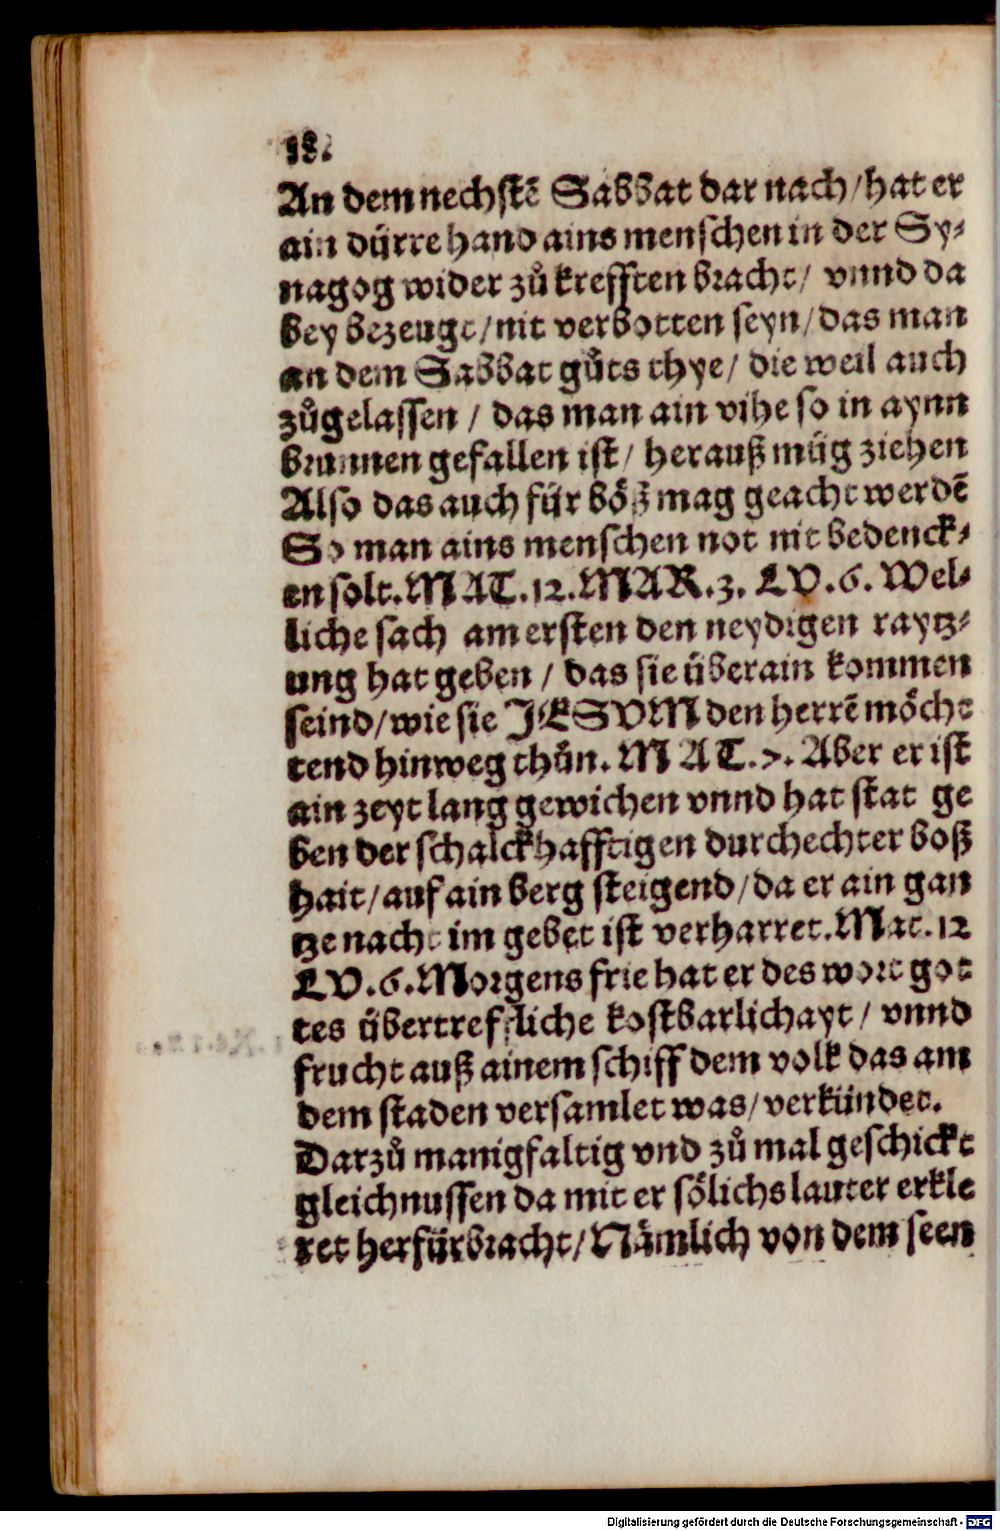 18.
An dem nechstẽ Sabbat dar nach/hat er
ain dürre hand ains menschen in der Sy⸗
nagog wider zů krefften bracht/ vnnd da
bey bezeugt/nit verbotten seyn/das man
an dem Sabbat gůts thye/ die weil auch
zůgelassen / das man ain vihe so in aynn
brunnen gefallen ist/ herauß müg ziehen
Also das auch für böß mag geacht werdẽ
So man ains menschen not nit bedenck⸗
en solt. MAT.12.MAR.3. LV.6. Wel⸗
liche sach am ersten den neydigen raytz⸗
ung hat geben / das sie überain kommen
seind/wie sie JESVM den herrẽ möcht
tend hinweg thůn. MAT.>. Aber er ist
ain zeyt lang gewichen vnnd hat stat ge
ben der schalckhafftigen durchechter boß
hait/auf ain berg steigend/da er ain gan
tze nacht im gebet ist verharret.Mat.12
LV.6.Morgens frie hat er des wort got
tes übertrefliche kostbarlichayt/ vnnd
frucht auß ainem schiff dem volk das am
dem staden versamlet was/verkündet.
Darzů manigfaltig vnd zů mal geschickt
gleichnussen da mit er sölichs lauter erkle
ret herfürbracht/Nämlich von dem seen
Digitalisierung gefördert durch die Deutsche Forschungsgemeinschaft - DFG